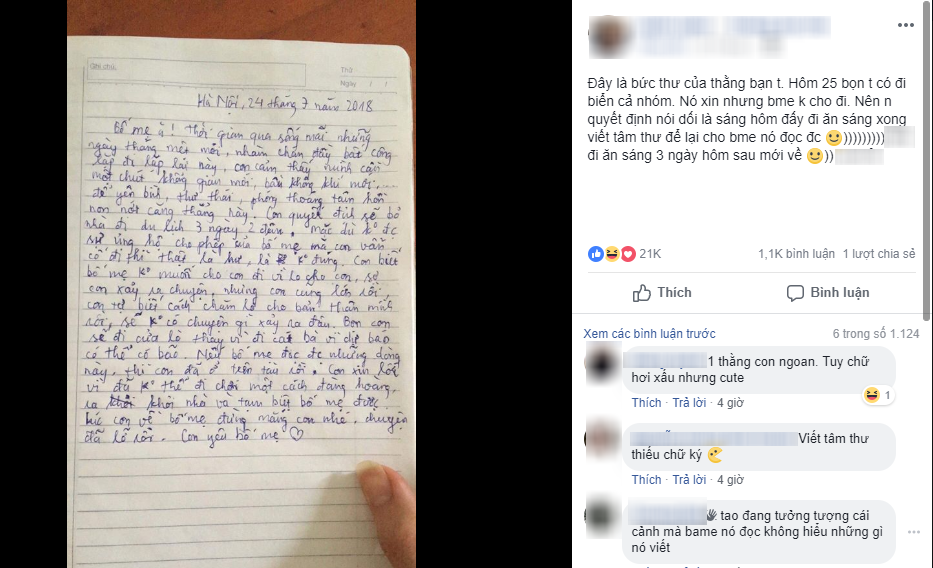 Ghi chú:
Thứ
Ngày / /
Hà Nội, 24 tháng 7 năm 2018
Bố mẹ à! Thời gian qua sống mãi những
ngày tháng mệt mỏi, nhàm chán đầy bất công
lặp đi lặp lại này, con cảm thấy mình cần
một chút không gian mới, bầu không khí mới
để yên bình, thư thái, phóng thoáng tâm hồn
non nớt căng thẳng này. Con quyết định sẽ bỏ
nhà đi du lịch 3 ngày 2 đêm. Mặc dù k° đc
sự ủng hộ cho phép của bố mẹ mà con vẫn
cố đi thì thật là hư, là k° đúng. Con biết
bố mẹ k° muốn cho con đi vì lo cho con, sợ
con xảy ra chuyện, nhưng con cũng lớn rồi,
con tự biết cách chăm lo cho bản thân mình
rồi, sẽ k° có chuyện gì xảy ra đâu. Bọn con
sẽ đi cửa lò thay vì đi cát bà vì dự báo
có thể có bão. Nếu bố mẹ đọc đc những dòng
này, thì con đã ở trên tàu rồi. Con xin lỗi
vì đã k° thể đi chơi một cách đàng hoàng
ra khỏi nhà và tạm biệt bố mẹ được
lúc con về bố mẹ đừng mắng con nhé, chuyện
đã lỡ rồi. Con yêu bố mẹ ♡
Đây là bức thư của thằng bạn t. Hôm 25 bọn t có đi
biển cả nhóm. Nó xin nhưng bme k cho đi. Nên n
quyết định nói dối là sáng hôm đấy đi ăn sáng xong
viết tâm thư để lại cho bme nó đọc đc 🙂)))))))))
đi ăn sáng 3 ngày hôm sau mới về 🙂))
21K 1,1K bình luận 1 lượt chia sẻ
Thích Bình luận
Xem các bình luận trước 6 trong số 1.124
1 thằng con ngoan. Tuy chữ
hơi xấu nhưng cute
Thích · Trả lời · 4 giờ 1
Viết tâm thư
thiếu chữ ký
Thích · Trả lời · 4 giờ
tao đang tưởng tượng cái
cảnh mà bame nó đọc không hiểu những gì
nó viết